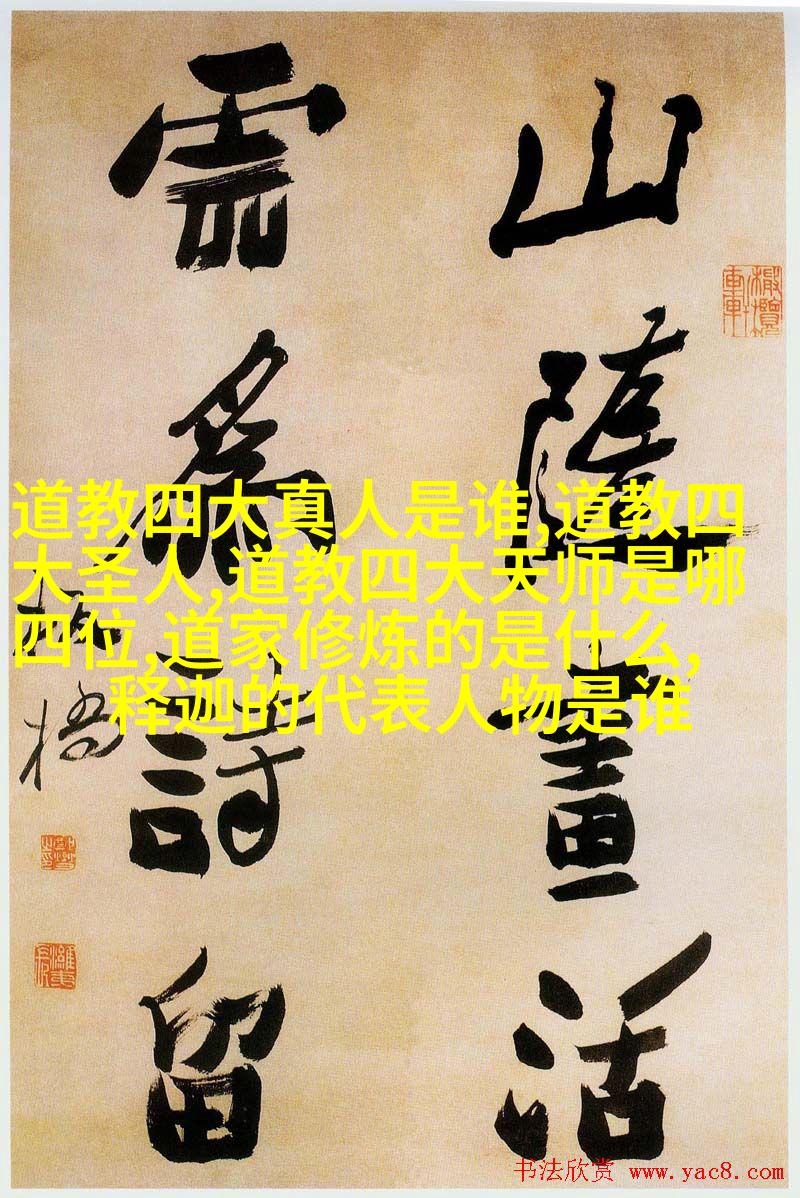 山隨畫活
雲為詩留
板橋
道教四大真人是谁,道教四
大圣人,道教四大天师是哪
四位,道家修炼的是什么,
释迦的代表人物是谁
书法欣赏 www.yac8.com